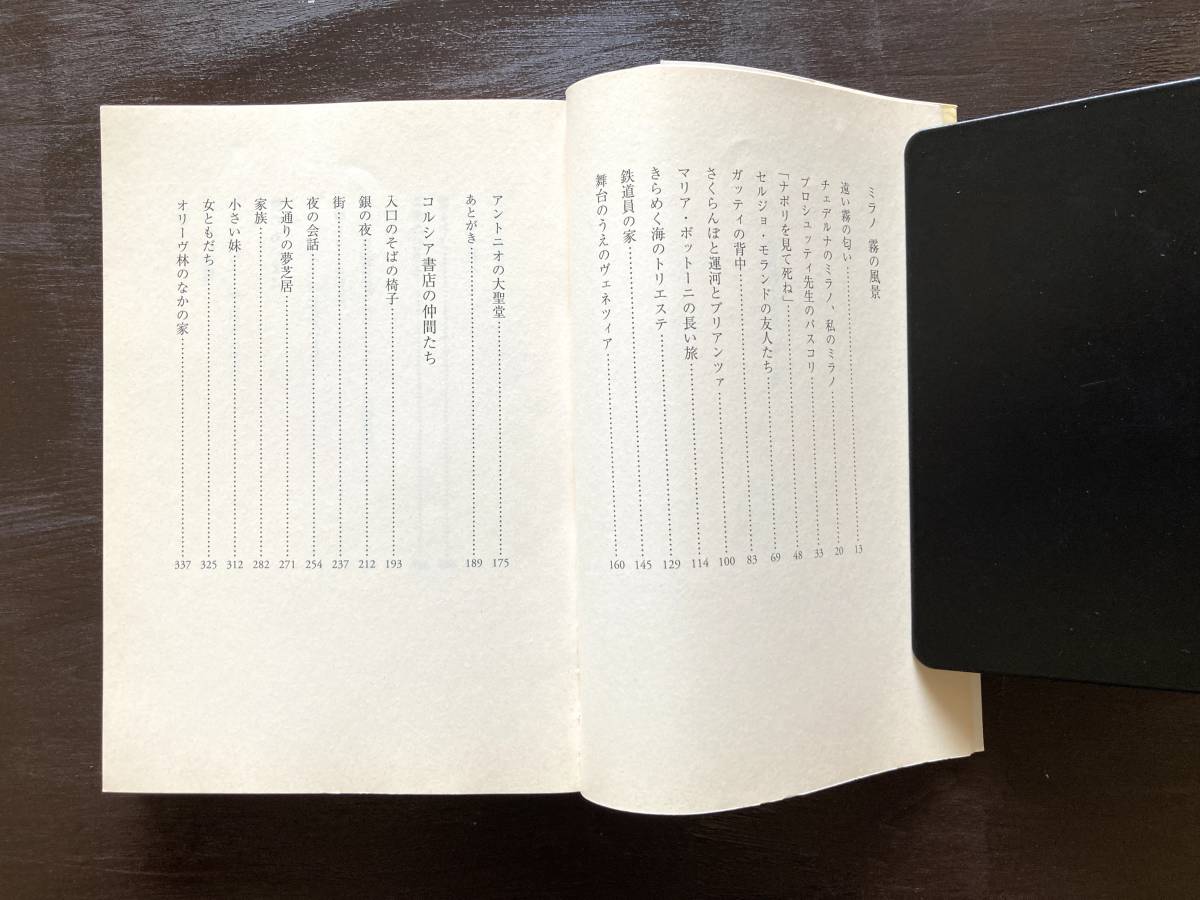 ミラノ 霧の風景
遠い霧の匂い 13
チェデルナのミラノ、私のミラノ 20
プロシュッティ先生のパスコリ 33
「ナポリを見て死ね」 48
セルジョ・モランドの友人たち 69
ガッティの背中 83
さくらんぼと運河とブリアンツァ 100
マリア・ボットーニの長い旅 114
きらめく海のトリエステ 129
鉄道員の家 145
舞台のうえのヴェネツィア 160
アントニオの大聖堂 175
あとがき 189
コルシア書店の仲間たち
入口のそばの椅子 193
銀の夜 212
街 237
夜の会話 254
大通りの夢芝居 271
家族 282
小さい妹 312
女ともだち 325
オリーヴ林のなかの家 337